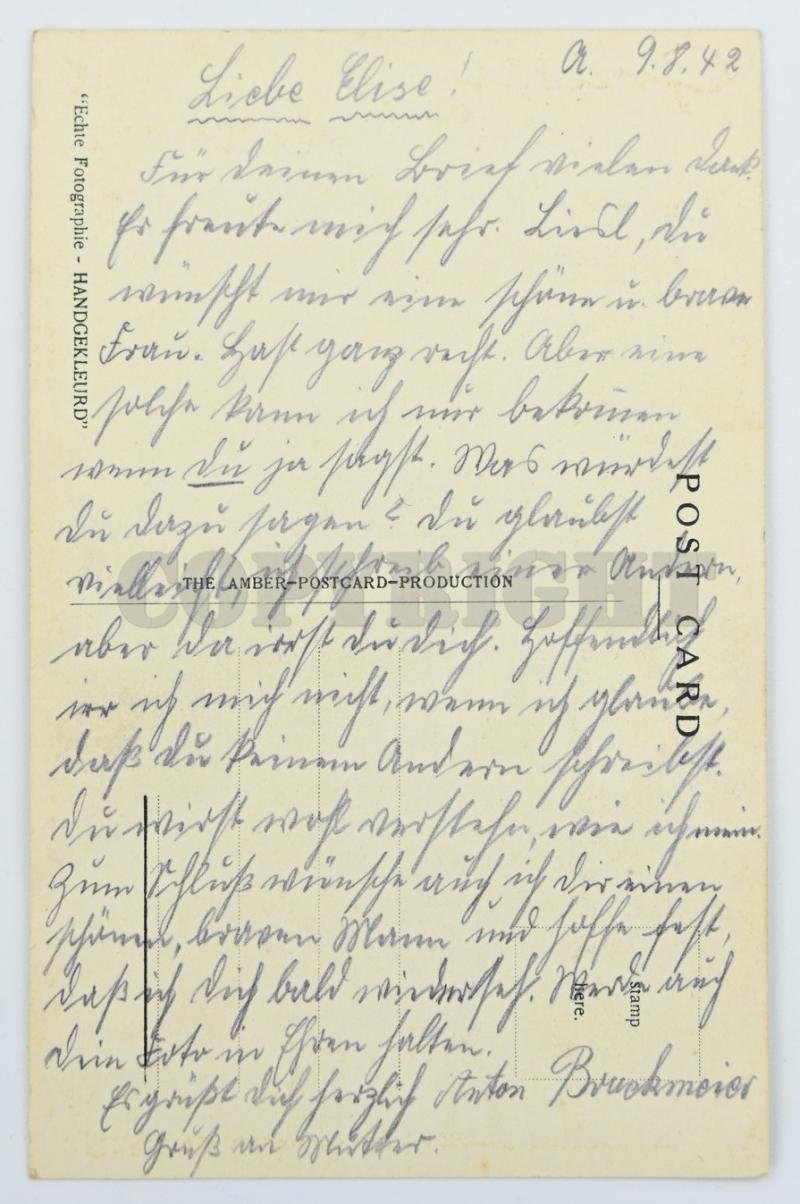 A. 9.8.42
Liebe Elise!
Für deinen Brief vielen Dank.
Er freute mich sehr. Liesl, du
wünscht mir eine schöne u. brave
Frau. Hast ganz recht. Aber eine
solche kann ich nur bekommen
wenn du ja sagst. Was würdest
du dazu sagen? Du glaubst
vielleicht, ich schreib einer Andern,
aber da irrst du dich. Hoffendlich
irr ich mich nicht, wenn ich glaube,
daß du keinem Andern schreibst.
Du wirst wohl verstehn, wie ich mein.
Zum Schluß wünsche auch ich dir einen
schönen, braven Mann und hoffe fest,
daß ich dich bald wiederseh. Werde auch
dein Foto in Ehren halten.
Es grüßt dich herzlich Anton Bruckmeier
Gruß an Mutter.
"Echte Fotographie - HANDGEKLEURD"
THE AMBER-POSTCARD-PRODUCTION
POST CARD
stamp
here.
COPYRIGHT